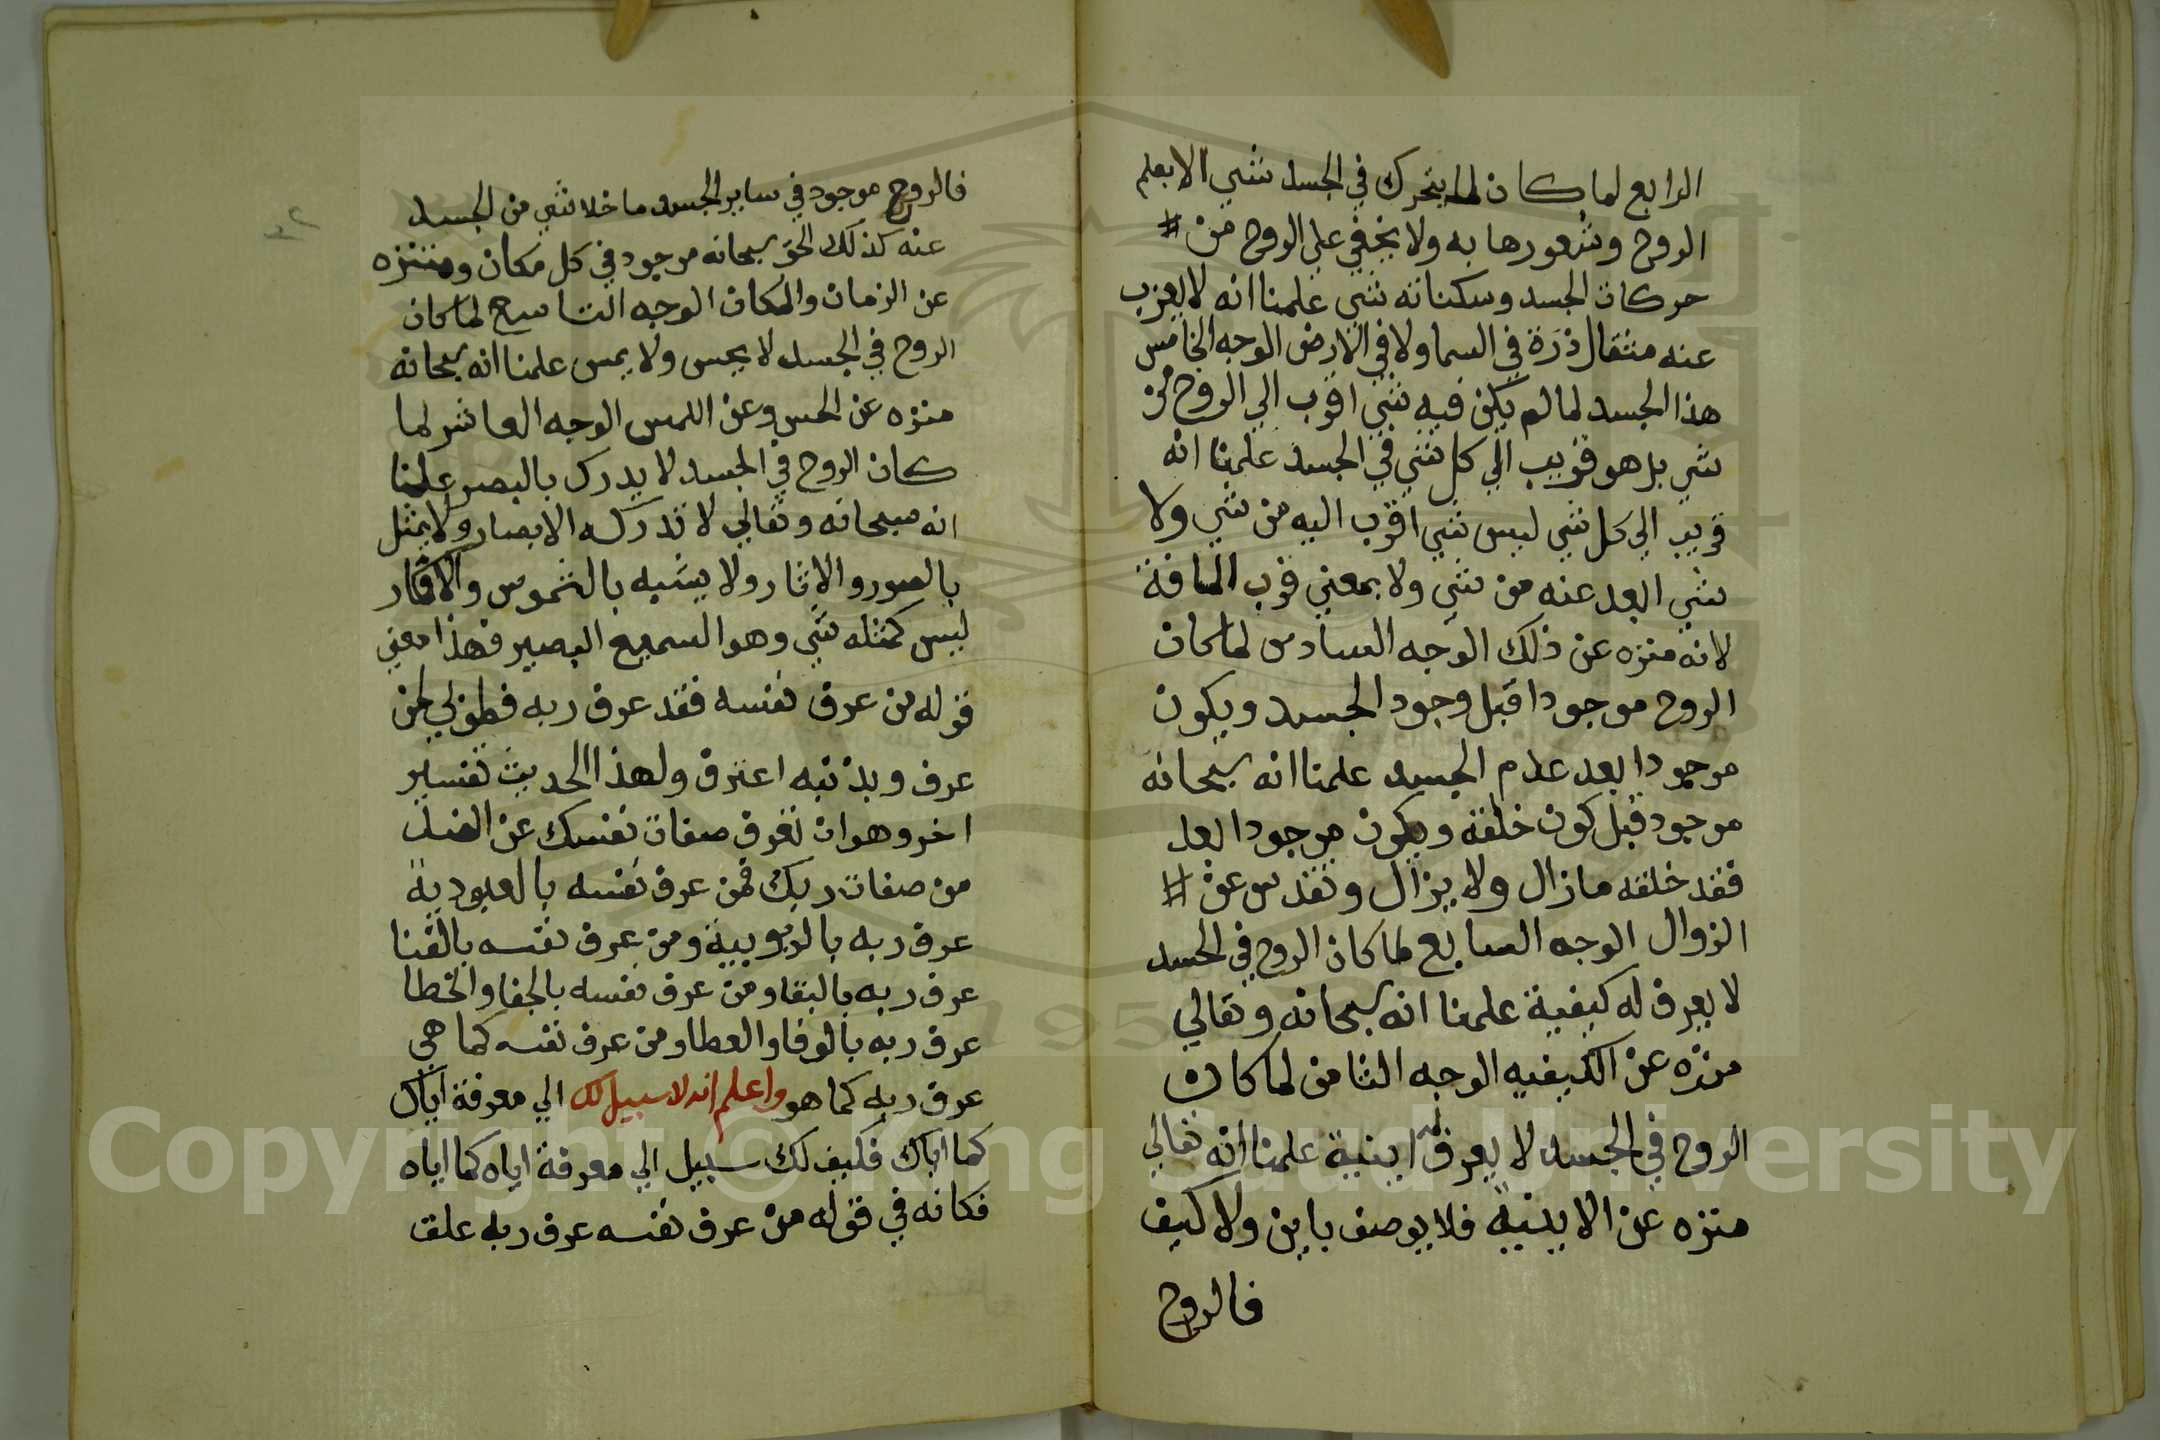 الرابع لما كان لما يتحرك في الجسد شي الا بعلم
الروح وشعورها به ولا يخفي علي الروح من #
حركات الجسد وسكناته شي علمنا انه لا يعزب
عنه مثقال ذرة في السما ولا في الارض الوجه الخامس
هذا الجسد لما لم يكن فيه شي اقرب الي الروح من
شي بل هو قريب الي كل شي في الجسد علمنا انه
قريب الي كل شي ليس شي اقرب اليه من شي ولا
شي ابعد عنه من شي ولا بمعني قرب المسافة
لانه منزه عن ذلك الوجه السادس لما كان
الروح موجودا قبل وجود الجسد ويكون
موجودا بعد عدم الجسد علمنا انه سبحانه
موجود قبل كون خلقه ويكون موجودا بعد
فقد خلقه مازال ولا يزال وتقدس عن #
الزوال الوجه السابع لما كان الروح في الجسد
لا يعرف له كيفية علمنا انه سبحانه وتعالي
منزه عن الكيفيه الوجه الثامن لما كان
الروح في الجسد لا يعرف له اينية علمنا انه تعالي
منزه عن الاينية فلا يوصف باين ولا كيف
فالروح
فالروح موجود في ساير الجسد ما خلا شي من الجسد
عنه كذلك الحق سبحانه موجود في كل مكان ومتنزه
عن الزمان والمكان الوجه التاسع لما كان
الروح في الجسد لا يحس ولا يمس علمنا انه سبحانه
منزه عن الحس وعن اللمس الوجه العاشر لما
كان الروح في الجسد لا يدرك بالبصر علمنا
انه سبحانه وتعالي لا تدركه الابصار ولا يمثل
بالصور والاثار ولا يشبه بالشموس والاقمار
ليس كمثله شي وهو السميع البصير فهذا معني
قوله من عرف نفسه فقد عرف ربه فطوبي لمن
عرف وبذنبه اعترف ولهذا الحديث تفسير
اخر وهو ان تعرف صفات نفسك عن الضد
من صفات ربك فمن عرف نفسه بالعبودية
عرف ربه بالربوبية ومن عرف نفسه بالفنا
عرف ربه بالبقا ومن عرف نفسه بالجفا والخطا
عرف ربه بالوفا والعطا ومن عرف نفسه كما هي
عرف ربه كما هو واعلم انه لا سبيل لك الي معرفة اياك
كما اياك فكيف لك سبيل الي معرفة اياه كما اياه
فكانه في قوله من عرف نفسه عرف ربه علق
Copyright © King Saud University